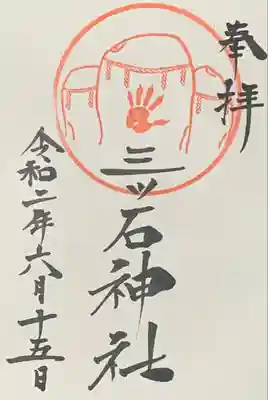 奉拝
三ツ石神社
令和二年六月十五日